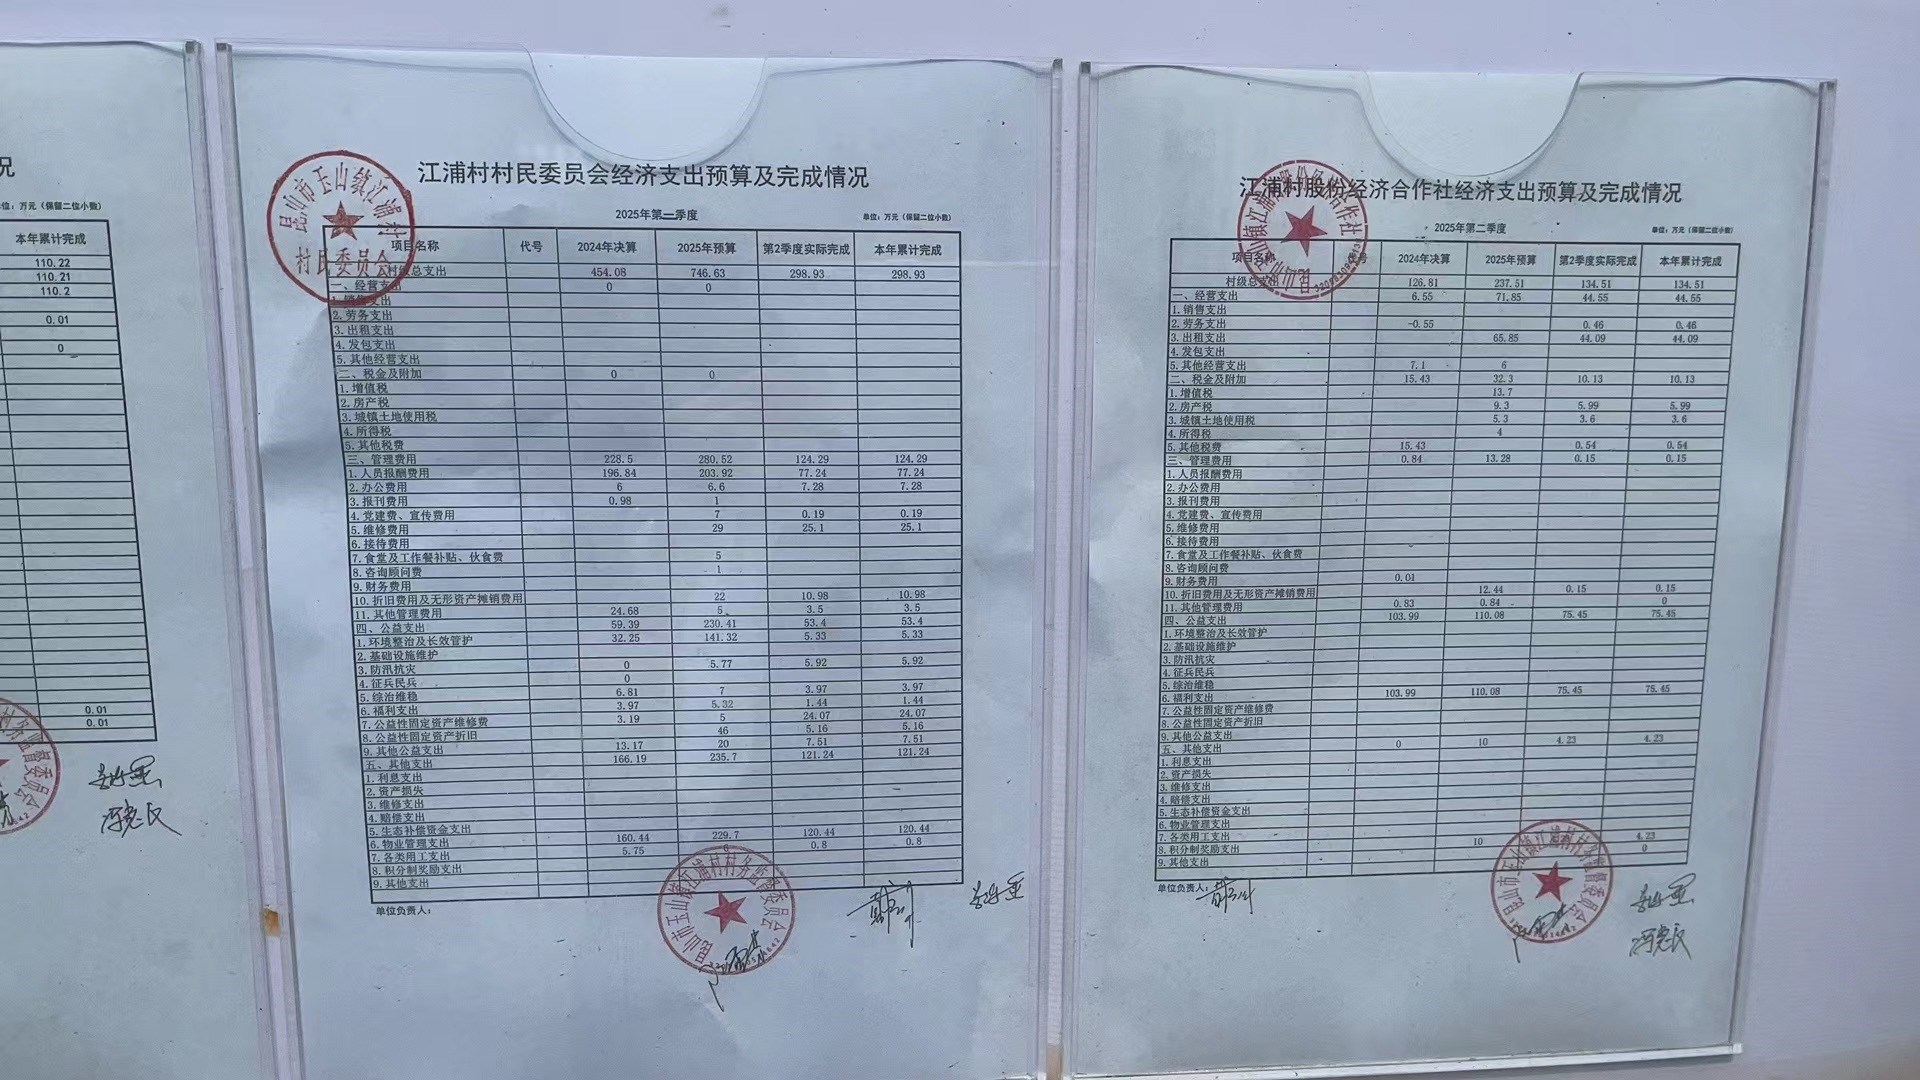 况
单位：万元（保留二位小数）
本年累计完成
110.22
110.21
110.2
0.01
0
0.01
0.01
江浦村村民委员会经济支出预算及完成情况
昆山市玉山镇江浦村
村民委员会
2025年第二季度
单位：万元（保留二位小数）
项目名称 代号 2024年决算 2025年预算 第2季度实际完成 本年累计完成
村级总支出 454.08 746.63 298.93 298.93
一、经营支出 0 0
1.销售支出
2.劳务支出
3.出租支出
4.发包支出
5.其他经营支出
二、税金及附加 0 0
1.增值税
2.房产税
3.城镇土地使用税
4.所得税
5.其他税费
三、管理费用 228.5 280.52 124.29 124.29
1.人员报酬费用 196.84 203.92 77.24 77.24
2.办公费用 6 6.6 7.28 7.28
3.报刊费用 0.98 1
4.党建费、宣传费用 7 0.19 0.19
5.维修费用 29 25.1 25.1
6.接待费用
7.食堂及工作餐补贴、伙食费 5
8.咨询顾问费 1
9.财务费用
10.折旧费用及无形资产摊销费用 22 10.98 10.98
11.其他管理费用 24.68 5 3.5 3.5
四、公益支出 59.39 230.41 53.4 53.4
1.环境整治及长效管护 32.25 141.32 5.33 5.33
2.基础设施维护
3.防汛抗灾 0 5.77 5.92 5.92
4.征兵民兵 0
5.综治维稳 6.81 7 3.97 3.97
6.福利支出 3.97 5.32 1.44 1.44
7.公益性固定资产维修费 3.19 5 24.07 24.07
8.公益性固定资产折旧 46 5.16 5.16
9.其他公益支出 13.17 20 7.51 7.51
五、其他支出 166.19 235.7 121.24 121.24
1.利息支出
2.资产损失
3.维修支出
4.赔偿支出
5.生态补偿资金支出
6.物业管理支出 160.44 229.7 120.44 120.44
7.各类用工支出 5.75 6 0.8 0.8
8.积分制奖励支出
9.其他支出
单位负责人：
昆山市玉山镇江浦村村务监督委员会
江浦村股份经济合作社经济支出预算及完成情况
2025年第二季度
单位：万元（保留二位小数）
项目名称 代号 2024年决算 2025年预算 第2季度实际完成 本年累计完成
村级总支出 126.81 237.51 134.51 134.51
一、经营支出 6.55 71.85 44.55 44.55
1.销售支出
2.劳务支出 -0.55 0.46 0.46
3.出租支出 65.85 44.09 44.09
4.发包支出
5.其他经营支出 7.1 6
二、税金及附加 15.43 32.3 10.13 10.13
1.增值税 13.7
2.房产税 9.3 5.99 5.99
3.城镇土地使用税 5.3 3.6 3.6
4.所得税 4
5.其他税费 15.43 0.54 0.54
三、管理费用 0.84 13.28 0.15 0.15
1.人员报酬费用
2.办公费用
3.报刊费用
4.党建费、宣传费用
5.维修费用
6.接待费用
7.食堂及工作餐补贴、伙食费
8.咨询顾问费
9.财务费用 0.01
10.折旧费用及无形资产摊销费用 12.44 0.15 0.15
11.其他管理费用 0.83 0.84 0
四、公益支出 103.99 110.08 75.45 75.45
1.环境整治及长效管护
2.基础设施维护
3.防汛抗灾
4.征兵民兵
5.综治维稳
6.福利支出 103.99 110.08 75.45 75.45
7.公益性固定资产维修费
8.公益性固定资产折旧
9.其他公益支出
五、其他支出 0 10 4.23 4.23
1.利息支出
2.资产损失
3.维修支出
4.赔偿支出
5.生态补偿资金支出
6.物业管理支出
7.各类用工支出 10 4.23
8.积分制奖励支出 0
9.其他支出
单位负责人：
昆山市玉山镇江浦村村务监督委员会